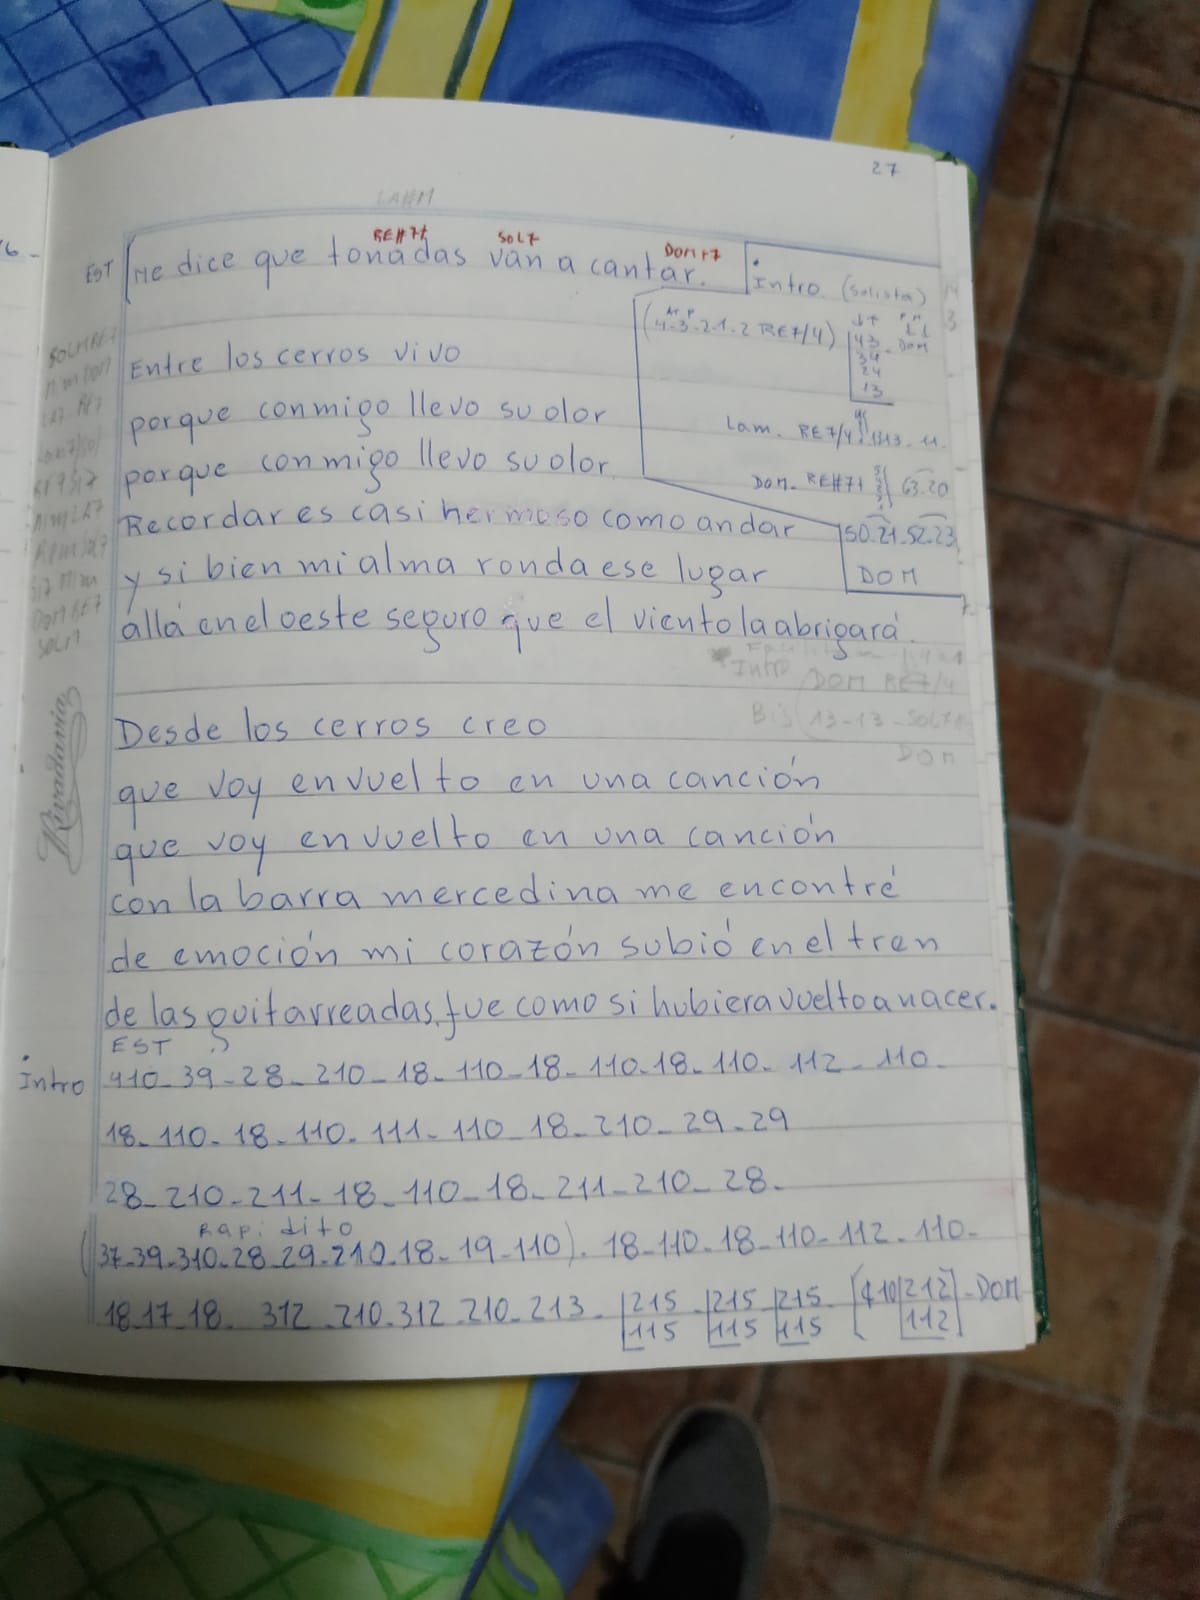 27
LA#M
RE#7+ SOL7 DOM+7
EST Me dice que tonadas van a cantar.
Intro. (solista)
(4-3-2-1-2 RE7/4) 43 - DOM
34
24
13
Lam. RE7/4
DOM. RE#7+ 63.20
50.21.52.23
DOM
Entre los cerros vivo
porque conmigo llevo su olor
porque conmigo llevo su olor
Recordar es casi hermoso como andar
y si bien mi alma ronda ese lugar
allá en el oeste seguro que el viento la abrigará.
Intro DOM RE7/4
Bis 13-13-SOL7
DOM
Rivadavia
Desde los cerros creo
que voy envuelto en una canción
que voy envuelto en una canción
con la barra mercedina me encontré
de emoción mi corazón subió en el tren
de las guitarreadas, fue como si hubiera vuelto a nacer.
EST
Intro 410-39-28-210-18-110-18-110-18-110-112-110-
18-110-18-110-111-110-18-210-29-29
28-210-211-18-110-18-211-210-28-
Rapidito
(37-39-310-28-29-210-18-19-110). 18-110-18-110-112-110-
18-17-18- 312-210-312-210-213- 215 215 215 [410 212] - DOM
115 115 115 112